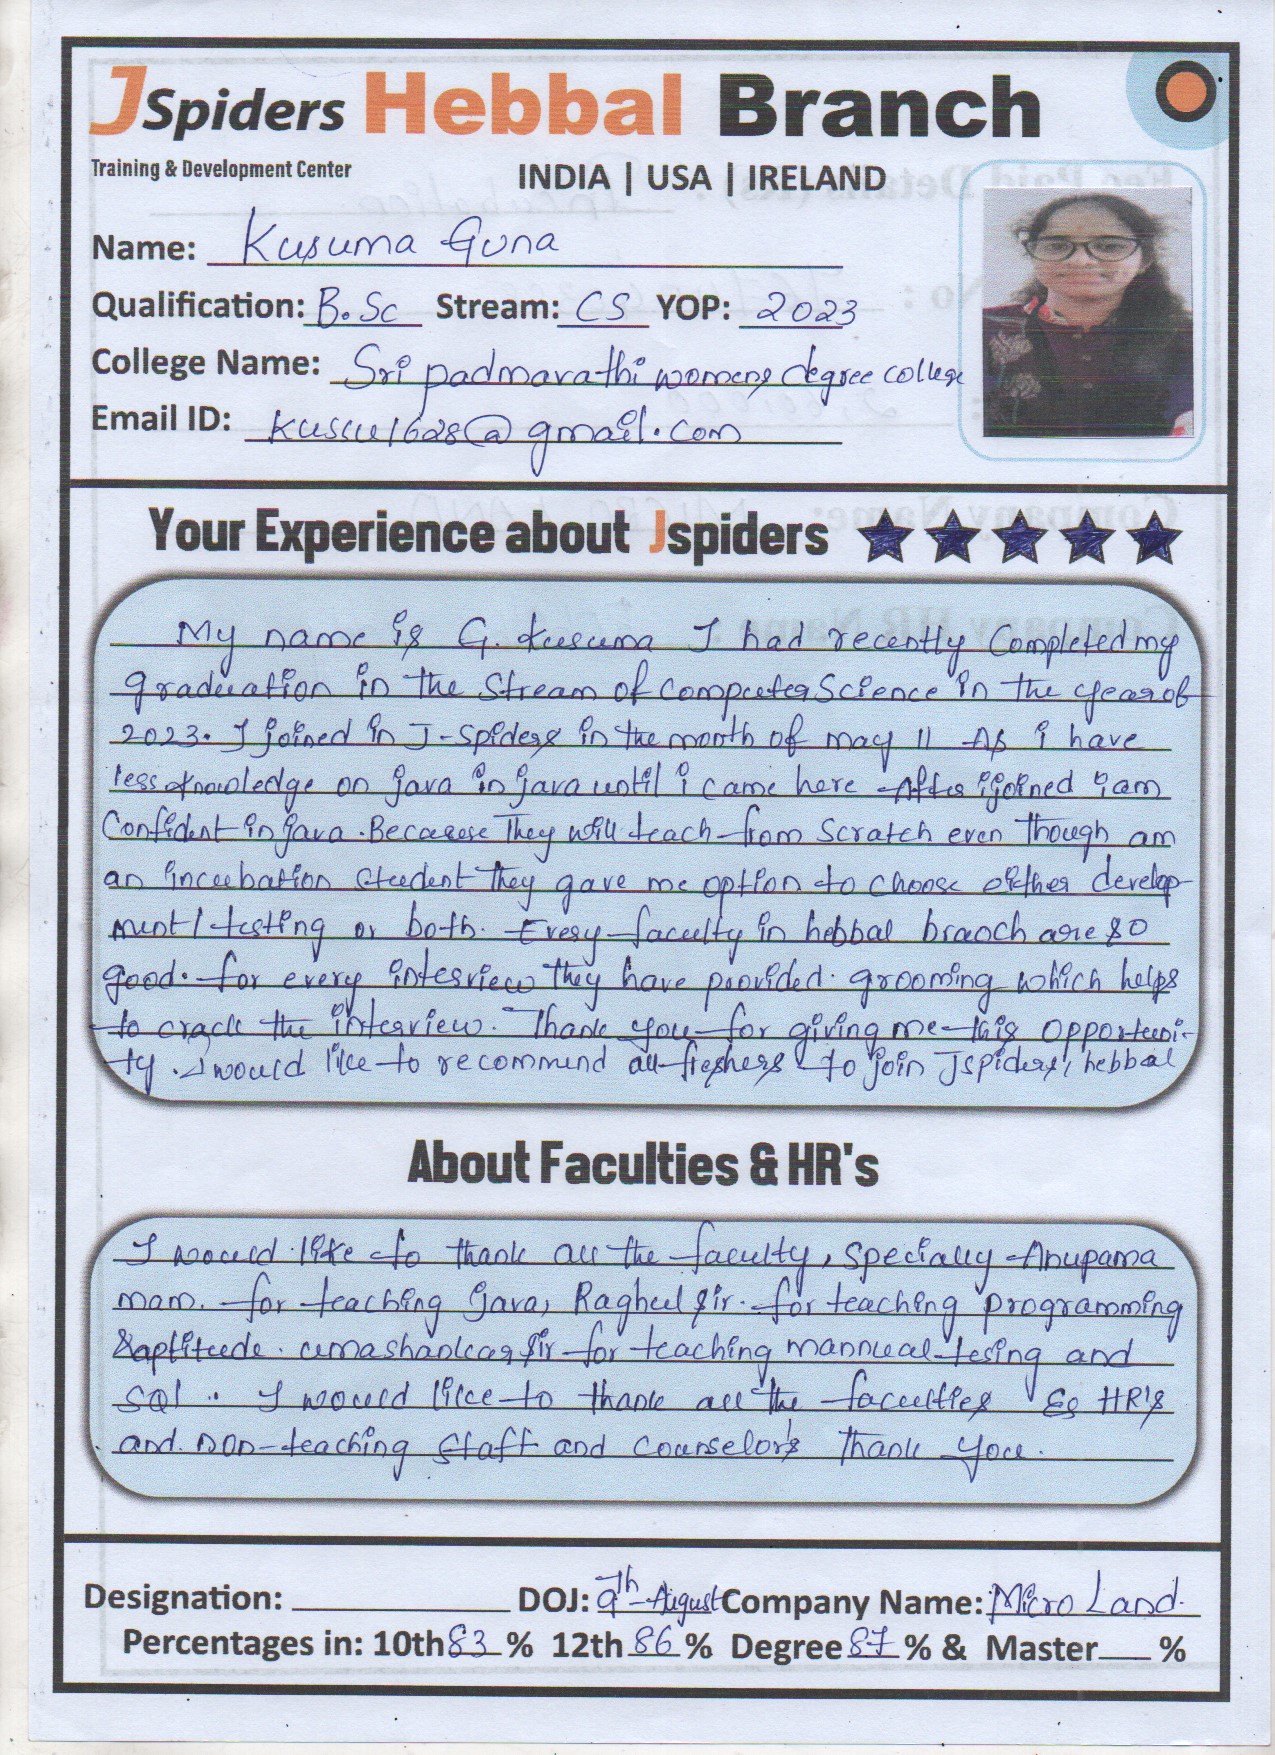 JSpiders Hebbal Branch
Training & Development Center
INDIA | USA | IRELAND
Name: Kusuma Guna
Qualification: B.Sc Stream: CS YOP: 2023
College Name: Sri padmavathi womens degree college
Email ID: kusuu1628@gmail.com
Your Experience about Jspiders
My name is G. Kusuma I had recently Completed my
graduation in the Stream of Computer Science in the year of
2023. I joined in J-Spiders in the month of may 11 As i have
less knowledge on java in java until i came here After i joined i am
Confident in java. Because They will teach from Scratch even though am
an incubation student They gave me option to choose either develop-
ment / testing or both. Every faculty in hebbal branch are so
good. for every interview They have provided. grooming which helps
to crack the interview. Thank you for giving me this opportuni-
ty. I would like to recommend all freshers to join Jspiders, hebbal
About Faculties & HR's
I would like to thank all the faculty, Specially Anupama
mam. for teaching java, Raghul sir. for teaching programming
& aptitude. umashankar sir for teaching mannual tesing and
SQl.. I would like to thank all the faculties & HR's
and non-teaching Staff and counselor's Thank you.
Designation: DOJ: 9Th August Company Name: Micro Land.
Percentages in: 10th 83 % 12th 86 % Degree 87 % & Master %